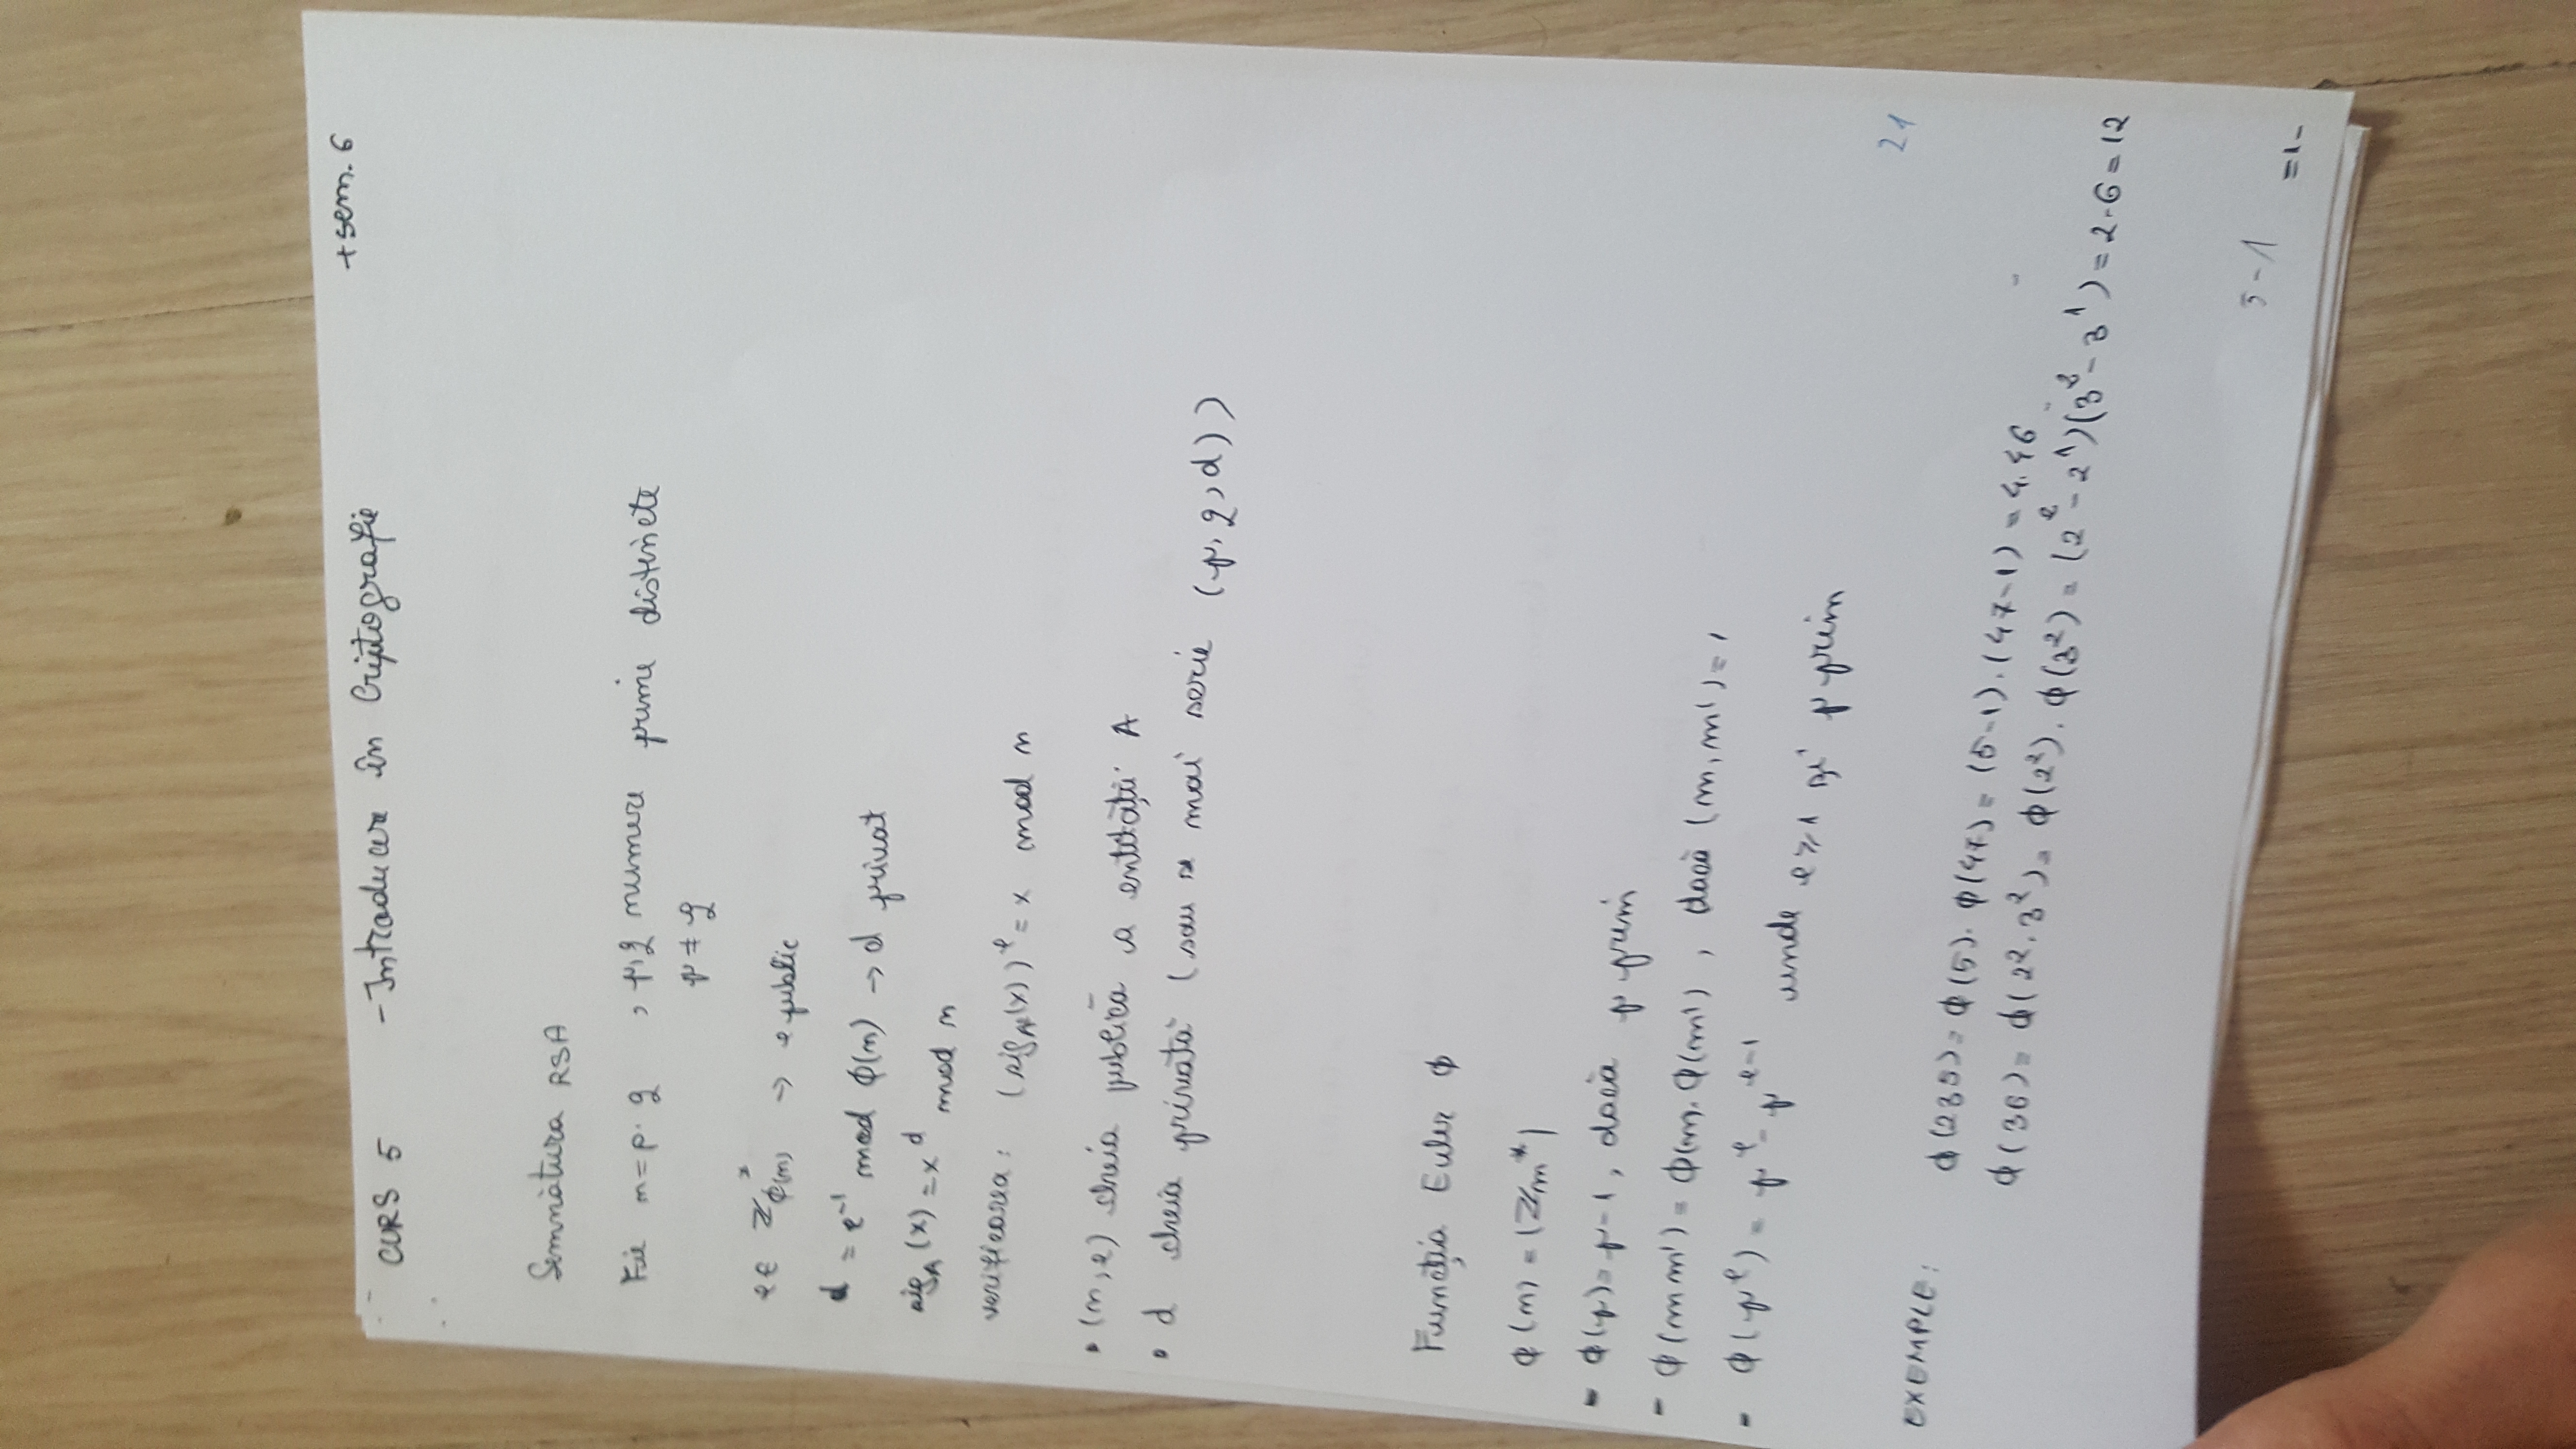 CURS 5 - Introducere în Criptografie + sem. 6
Semnătura RSA
Fie n = p · q , p, q numere prime distincte
p ≠ q
e ∈ Z*ϕ(n) → e public
d = e⁻¹ mod ϕ(n) → d privat
sig_A (x) = x^d mod n
verificarea: (sig_A(x))^e = x mod n
• (n, e) cheia publică a entității A
• d cheia privată (sau se mai scrie (p, q, d))
Funcția Euler ϕ
ϕ(m) = |Zm*|
- ϕ(p) = p-1, dacă p prim
- ϕ(m m') = ϕ(m). ϕ(m') , dacă (m, m') = 1
- ϕ(p^e) = p^e - p^(e-1) unde e ≥ 1 și p prim
21
EXEMPLE: ϕ(235) = ϕ(5). ϕ(47) = (5-1). (47-1) = 4.46
ϕ(36) = ϕ(2². 3²) = ϕ(2²). ϕ(3²) = (2² - 2¹)(3² - 3¹) = 2.6 = 12
5-1
=1-